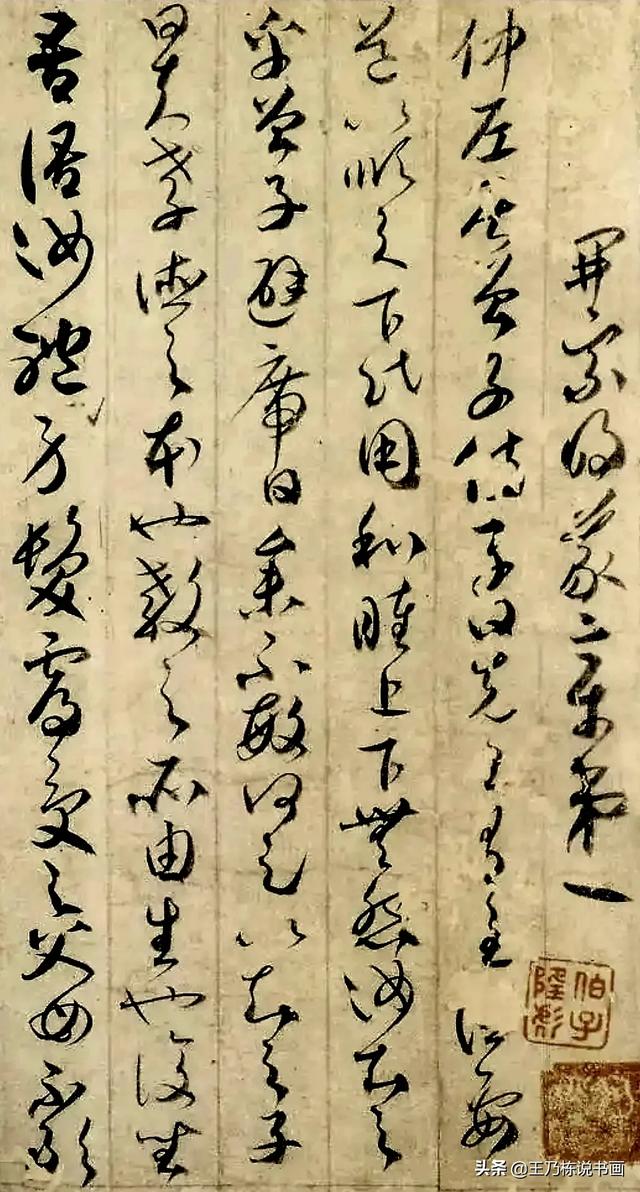 開宗明義章第一
仲尼居曾子侍子曰先王有至德要
道以順天下民用和睦上下無怨汝知之
乎曾子避席曰參不敏何足以知之子
曰夫孝德之本也教之所由生也復坐
吾語汝體身髮膚受之父母不敢
头条 @王乃栋说书画